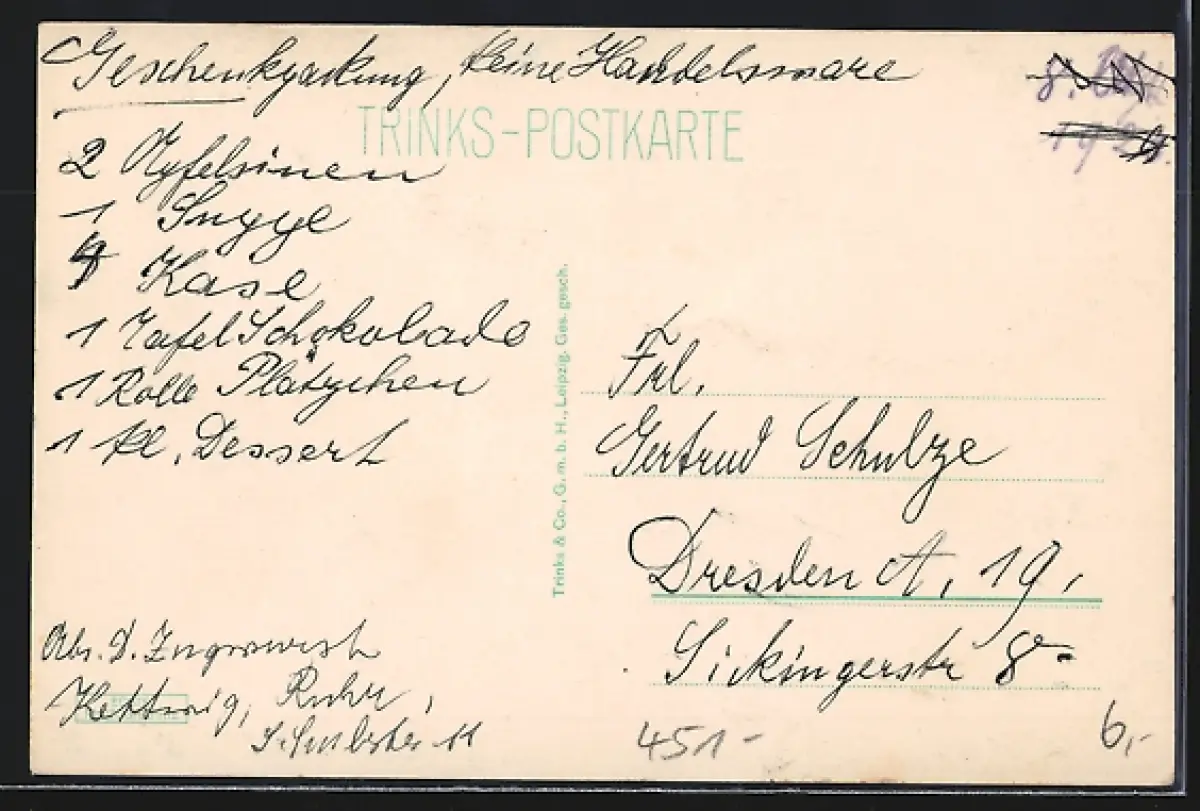 Geschenkpackung, keine Handelsware
TRINKS-POSTKARTE
2 Apfelsinen
1 Suppe
4 Käse
1 Tafel Schokolade
1 Rolle Plätzchen
1 kl. Dessert
Abs. D.
Kettwig, Ruhr,
11
Trinks & Co., G. m. b. H., Leipzig. Ges. gesch.
Frl.
Gertrud Schulze
Dresden A, 19,
Sickingerstr 8
451-
6,-